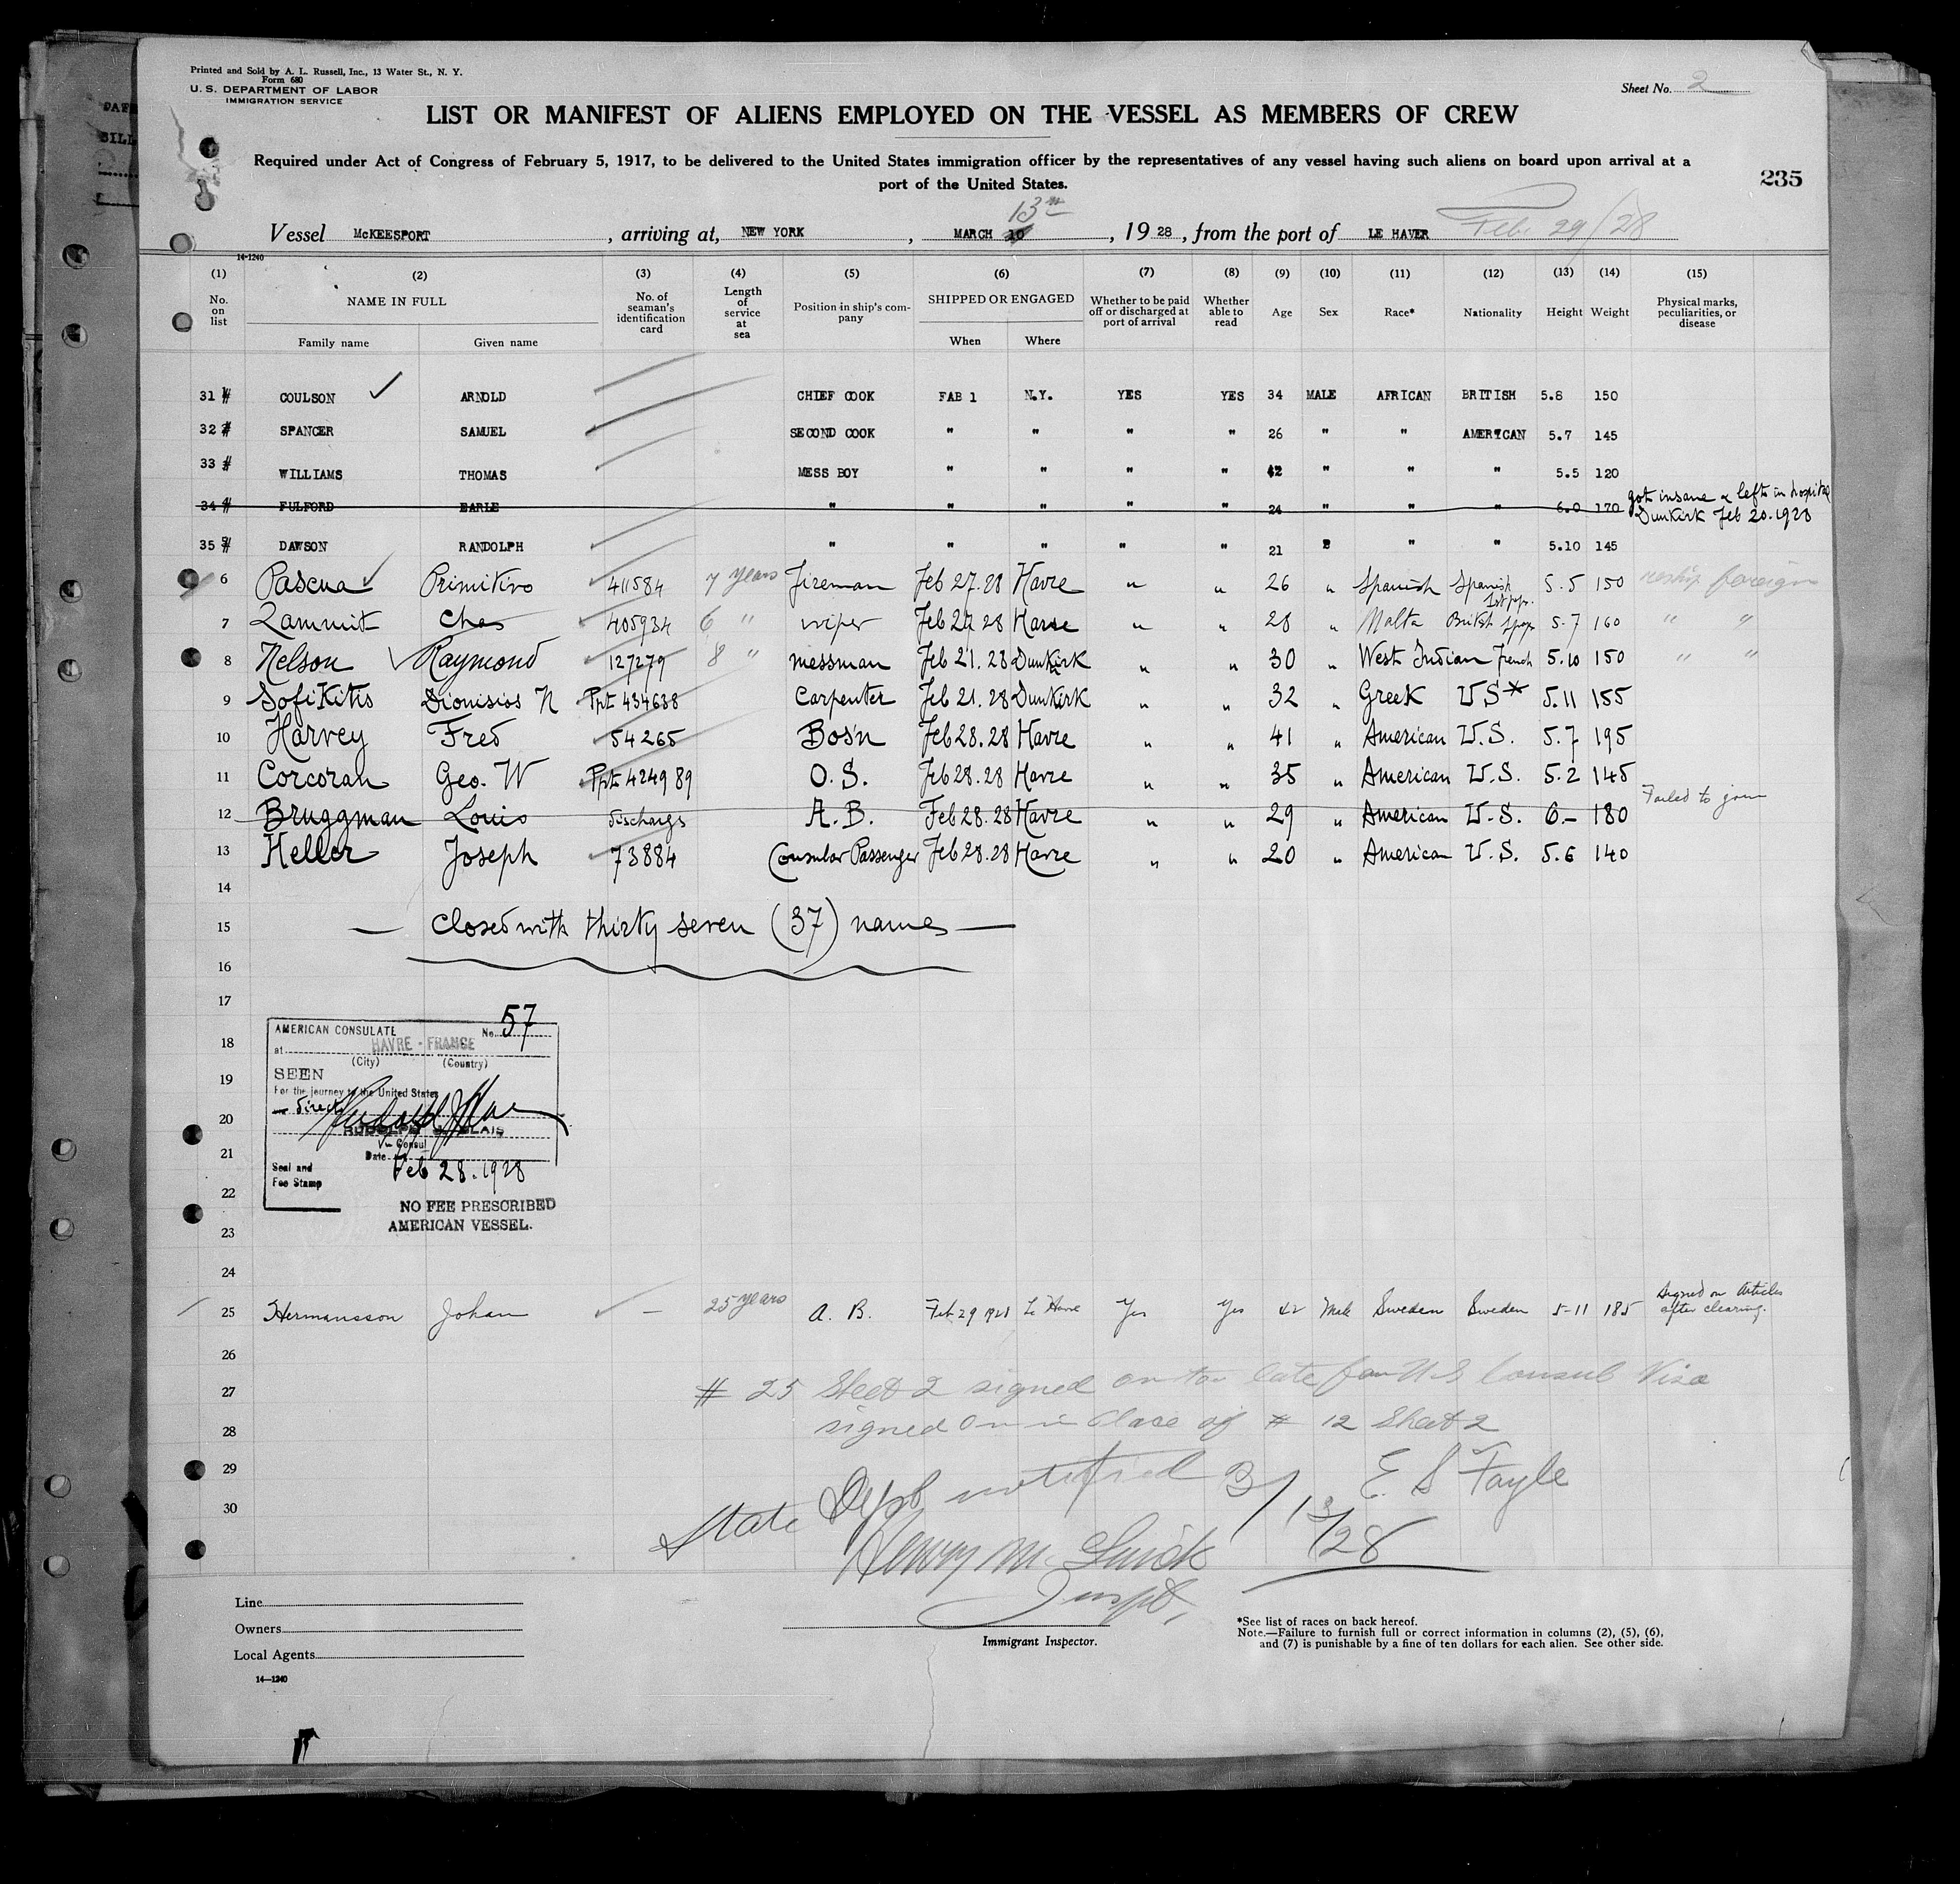 Printed and Sold by A. L. Russell, Inc., 13 Water St., N. Y.
Form 680
U. S. DEPARTMENT OF LABOR
IMMIGRATION SERVICE
Sheet No. 2
LIST OR MANIFEST OF ALIENS EMPLOYED ON THE VESSEL AS MEMBERS OF CREW
Required under Act of Congress of February 5, 1917, to be delivered to the United States immigration officer by the representatives of any vessel having such aliens on board upon arrival at a
port of the United States.
235
13th
Vessel McKEESPORT, arriving at, NEW YORK, MARCH 10, 1928, from the port of LE HAVER Feb. 29/28
14-1240
(1) (2) (3) (4) (5) (6) (7) (8) (9) (10) (11) (12) (13) (14) (15)
No. on list NAME IN FULL Family name Given name No. of seaman's identification card Length of service at sea Position in ship's company SHIPPED OR ENGAGED When Where Whether to be paid off or discharged at port of arrival Whether able to read Age Sex Race* Nationality Height Weight Physical marks, peculiarities, or disease
31 COULSON ARNOLD CHIEF COOK FAB 1 N.Y. YES YES 34 MALE AFRICAN BRITISH 5.8 150
32 SPANCER SAMUEL SECOND COOK " " " " 26 " " AMERICAN 5.7 145
33 WILLIAMS THOMAS MESS BOY " " " " 42 " " " 5.5 120
34 FULFORD EARLE " " " " " 24 " " " 6.0 170 got insane & left in hospital
Dunkirk Feb 20.1928
35 DAWSON RANDOLPH " " " " " 21 " " " 5.10 145
6 Pascua Primitivo 411584 7 years Fireman Feb 27.28 Havre " " 26 " Spanish Spanish 1st pap. 5.5 150 reship foreign
7 Zammit Chas 405934 6 " wiper Feb 27 28 Havre " " 28 " Malta British 5.7 160 " "
8 Nelson Raymond 127279 8 " messman Feb 21.28 Dunkirk " " 30 " West Indian French 5.10 150 " "
9 Sofikitis Dionisios N Ppt 434638 Carpenter Feb 21.28 Dunkirk " " 32 " Greek U S* 5.11 155
10 Harvey Fred 54265 Bos'n Feb 28.28 Havre " " 41 " American U.S. 5.7 195
11 Corcoran Geo. W Ppt 424989 O. S. Feb 28.28 Havre " " 35 " American U.S. 5.2 145
12 Bruggman Louis discharge A. B. Feb 28.28 Havre " " 29 " American U.S. 6.- 180 Failed to join
13 Heller Joseph 73884 Consular Passenger Feb 28.28 Havre " " 20 " American U.S. 5.6 140
14
15 — Closed with thirty seven (37) names —
16
17
18
19
20
21
22
23
24
AMERICAN CONSULATE No. 57
at HAVRE - FRANCE
(City) (Country)
SEEN
For the journey to the United States
direct
Consul
Date Feb 28.1928
Seal and
Fee Stamp
NO FEE PRESCRIBED
AMERICAN VESSEL.
25 Hermansson Johan — 25 years A. B. Feb 29 1928 Le Havre Yes Yes 42 Male Sweden Sweden 5-11 185 Signed on Articles
after clearing.
26
27 # 25 Sheet 2 signed on too late for U S Consul Visa
28 signed on in place of # 12 Sheet 2
29 E S Fayle
30 State Dept notified 3/13/28
Henry M.
Inspt,
Line
Owners
Local Agents
14—1240
Immigrant Inspector.
*See list of races on back hereof.
Note.—Failure to furnish full or correct information in columns (2), (5), (6),
and (7) is punishable by a fine of ten dollars for each alien. See other side.